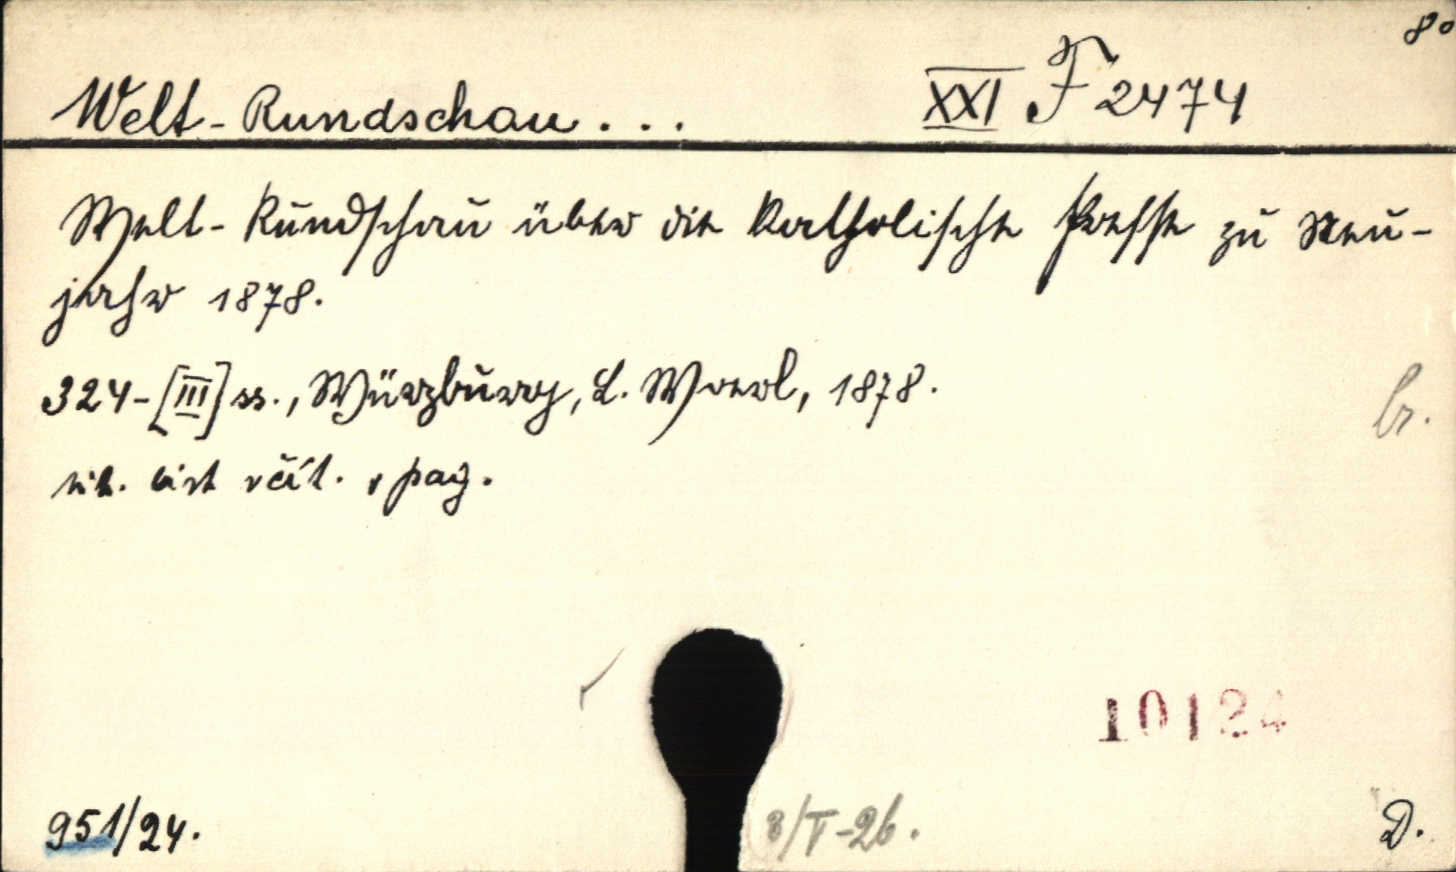 80
Welt-Rundschau... XXI F 2474
Welt-Rundschau über die katholische Presse zu Neu-
jahr 1878.
324-[III] ss., Würzburg, L. Woerl, 1878.
br.
část pag.
10124
951/24.
8/V-26.
D.